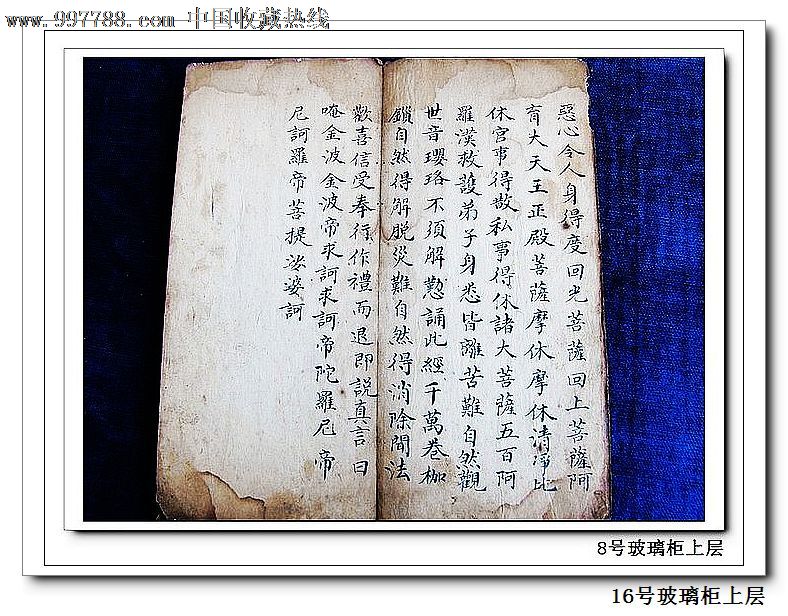 www.997788.com 中国收藏热线
惡心令人身得度回光菩薩回上菩薩阿
育大天王正殿菩薩摩休摩休清淨比
休宮事得散私事得休諸大菩薩五百阿
羅漢救護弟子身悉皆離苦難自然觀
世音瓔珞不須解懃誦此經千萬卷枷
鎖自然得解脫災難自然得消除聞法
歡喜信受奉行作禮而退即說真言曰
唵金波金波帝求訶求訶帝陀羅尼帝
尼訶羅帝菩提娑婆訶
8号玻璃柜上层
16号玻璃柜上层